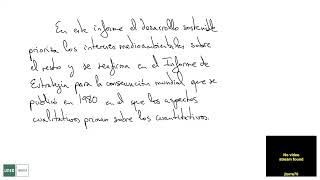 En este informe el desarrollo sostenible
prioriza los intereses medioambientales sobre
el resto y se reafirma en el Informe de
Estrategia para la conservación mundial que se
publicó en 1980 en el que los aspectos
cualitativos priman sobre los cuantitativos.
No video
stream found
UNED